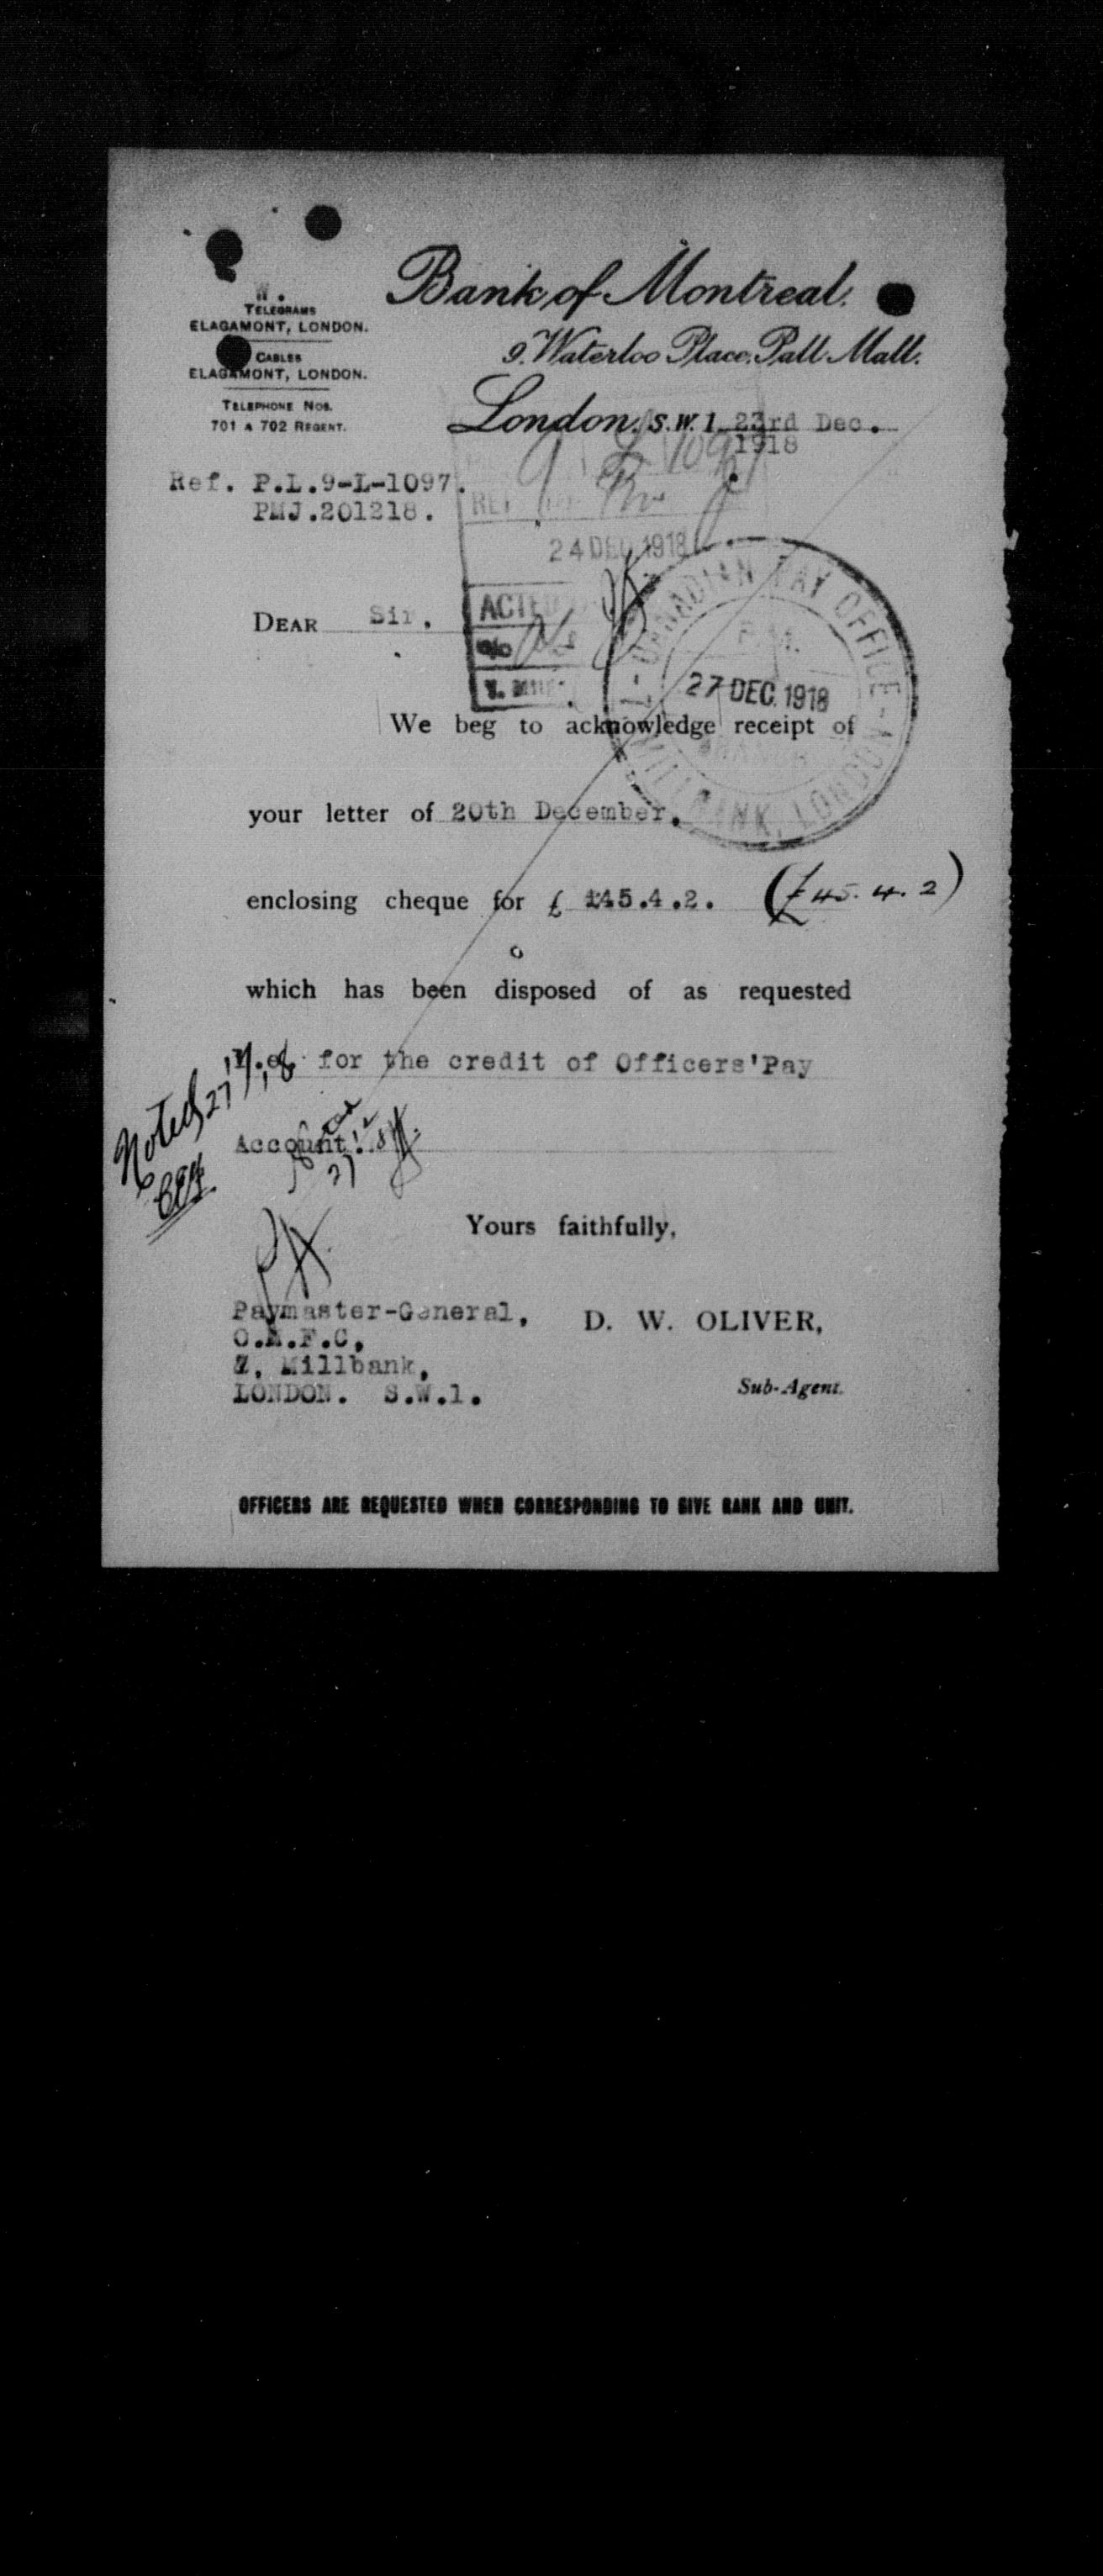 Bank of Montreal.
TELEGRAMS
ELAGAMONT, LONDON.
9. Waterloo Place. Pall Mall.
CABLES
ELAGAMONT, LONDON.
TELEPHONE NOS.
701 & 702 REGENT.
London, S.W.1. 23rd Dec.
1918
Ref. P.L.9-L-1097.
PMJ.201218.
24 DEC 1918
ACTED
DEAR Sir,
CANADIAN PAY OFFICE
27 DEC. 1918
MILLBANK, LONDON
We beg to acknowledge receipt of
your letter of 20th December.
enclosing cheque for £ £45.4.2. (£45.4.2)
which has been disposed of as requested
for the credit of Officers'Pay
Noted 27
Account.
27
Yours faithfully,
Paymaster-General,
D. W. OLIVER,
O.M.F.C,
7, Millbank,
LONDON. S.W.1.
Sub-Agent.
OFFICERS ARE REQUESTED WHEN CORRESPONDING TO GIVE RANK AND UNIT.